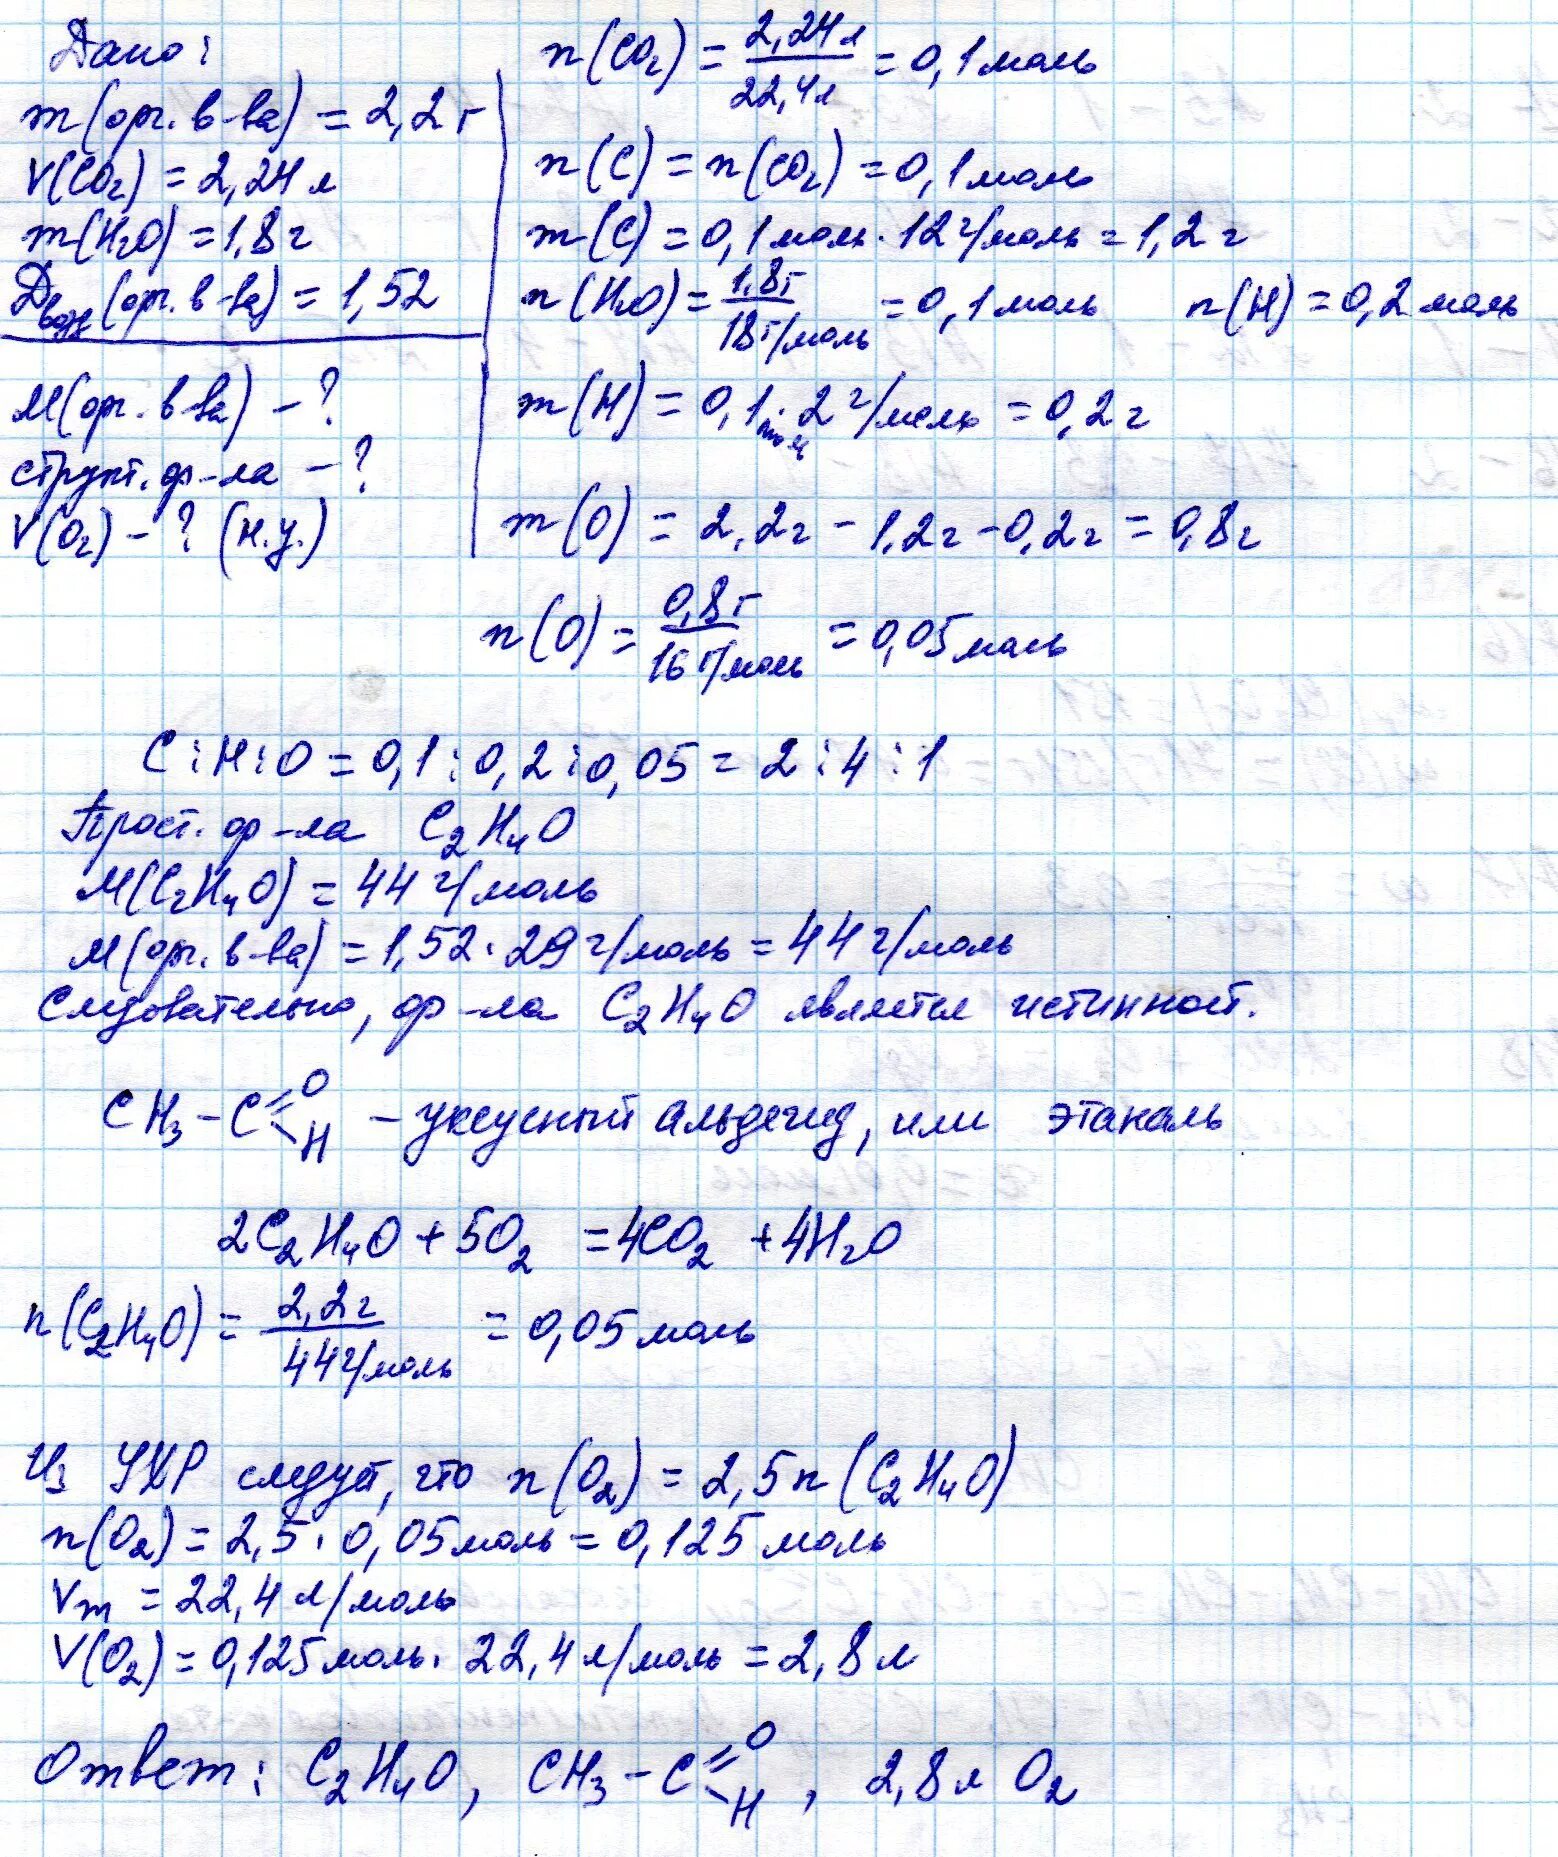 Дано:
m(орг. в-ва) = 2,2 г
V(CO₂) = 2,24 л
m(H₂O) = 1,8 г
Dвозд(орг. в-ва) = 1,52
M(орг. в-ва) - ?
структ. ф-ла - ?
V(O₂) - ? (н.у.)
n(CO₂) = 2,24 л / 22,4 л = 0,1 моль
n(C) = n(CO₂) = 0,1 моль
m(C) = 0,1 моль · 12 г/моль = 1,2 г
n(H₂O) = 1,8 г / 18 г/моль = 0,1 моль n(H) = 0,2 моль
m(H) = 0,1 моль · 2 г/моль = 0,2 г
m(O) = 2,2 г - 1,2 г - 0,2 г = 0,8 г
n(O) = 0,8 г / 16 г/моль = 0,05 моль
C : H : O = 0,1 : 0,2 : 0,05 = 2 : 4 : 1
Прост. ф-ла C₂H₄O
M(C₂H₄O) = 44 г/моль
M(орг. в-ва) = 1,52 · 29 г/моль = 44 г/моль
Следовательно, ф-ла C₂H₄O является истинной.
CH₃ - C =O -H - уксусный альдегид, или этаналь
2C₂H₄O + 5O₂ = 4CO₂ + 4H₂O
n(C₂H₄O) = 2,2 г / 44 г/моль = 0,05 моль
Из УХР следует, что n(O₂) = 2,5n(C₂H₄O)
n(O₂) = 2,5 · 0,05 моль = 0,125 моль
Vm = 22,4 л/моль
V(O₂) = 0,125 моль · 22,4 л/моль = 2,8 л
Ответ: C₂H₄O, CH₃ - C =O -H, 2,8 л O₂